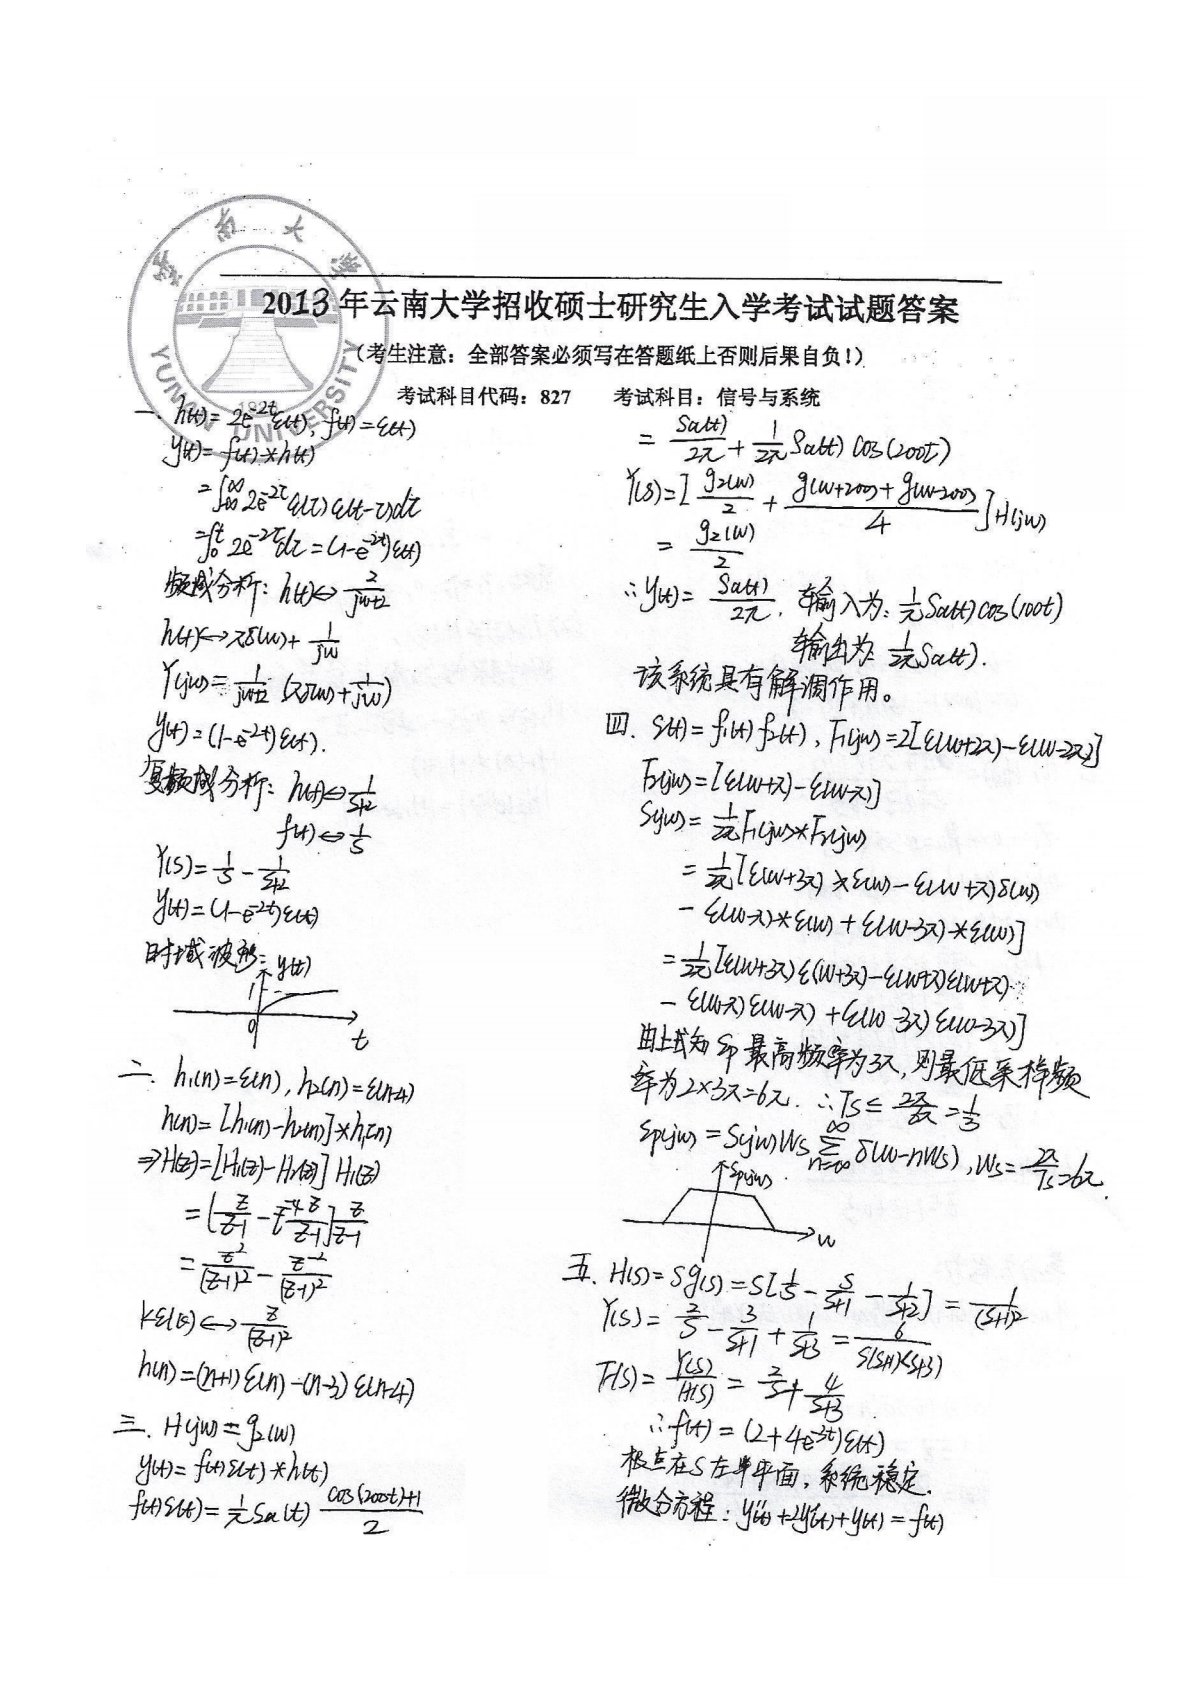 雲南大學
YUNNAN UNIVERSITY
1922
2013年云南大学招收硕士研究生入学考试试题答案
（考生注意：全部答案必须写在答题纸上否则后果自负！）
考试科目代码：827 考试科目：信号与系统
一. h(t)=2e^{-2t}ε(t), f(t)=ε(t)
y(t)=f(t)*h(t)
=∫_{-∞}^{∞} 2e^{-2τ}ε(τ)ε(t-τ)dτ
=∫_0^t 2e^{-2τ}dτ=(1-e^{-2t})ε(t)
频域分析: h(t)⇔2/(jw+2)
h(t)⇔πδ(w)+1/(jw)
Y(jw)=1/(jw+2) (πδ(w)+1/(jw))
y(t)=(1-e^{-2t})ε(t).
复频域分析: h(t)⇔1/(s+2)
f(t)⇔1/s
Y(s)=1/s-1/(s+2)
y(t)=(1-e^{-2t})ε(t)
时域波形: y(t)
1
0
t
二. h₁(n)=ε(n), h₂(n)=ε(n-4)
h(n)=[h₁(n)-h₂(n)]*h₁(n)
⇒H(z)=[H₁(z)-H₂(z)]H₁(z)
=[z/(z-1)-z^{-4}z/(z-1)]z/(z-1)
=z²/(z-1)²-z^{-2}/(z-1)²
kε(k)⇔z/(z-1)²
h(n)=(n+1)ε(n)-(n-3)ε(n-4)
三. H(jw)=g₂(w)
y(t)=f(t)s(t)*h(t)
f(t)s(t)=1/π Sa(t) (cos(200t)+1)/2
=Sa(t)/2π+1/2π Sa(t)cos(200t)
Y(s)=[g₂(w)/2+(g(w+200)+g(w-200))/4]H(jw)
=g₂(w)/2
∴y(t)=Sa(t)/2π. 输入为: 1/π Sa(t)cos(100t)
输出为: 1/2π Sa(t).
该系统具有解调作用。
四. s(t)=f₁(t)f₂(t), F₁(jw)=2[ε(w+2π)-ε(w-2π)]
F₂(jw)=[ε(w+π)-ε(w-π)]
S(jw)=1/2π F₁(jw)*F₂(jw)
=1/2π[ε(w+3π)*ε(w)-ε(w+π)δ(w)
-ε(w-π)*ε(w)+ε(w-3π)*ε(w)]
=1/2π[ε(w+3π)ε(w+3π)-ε(w+π)ε(w+π)
-ε(w-π)ε(w-π)+ε(w-3π)ε(w-3π)]
由上式知 最高频率为3π, 则最低采样频
率为2×3π=6π. ∴Ts≤2π/6π=1/3
Sp(jw)=S(jw)Ws Σ_{n=-∞}^{∞} δ(w-nWs), Ws=2π/Ts=6π.
Sp(jw)
w
五. H(s)=sg(s)=s[1/s-s/(s+1)-1/(s+2)]=1/(s+1)²
Y(s)=2/s-3/(s+1)+1/(s+3)=6/(s(s+1)(s+3))
F(s)=Y(s)/H(s)=2/s+4/(s+3)
∴f(t)=(2+4e^{-3t})ε(t)
极点在s左半平面，系统稳定.
微分方程: y''(t)+2y'(t)+y(t)=f(t)